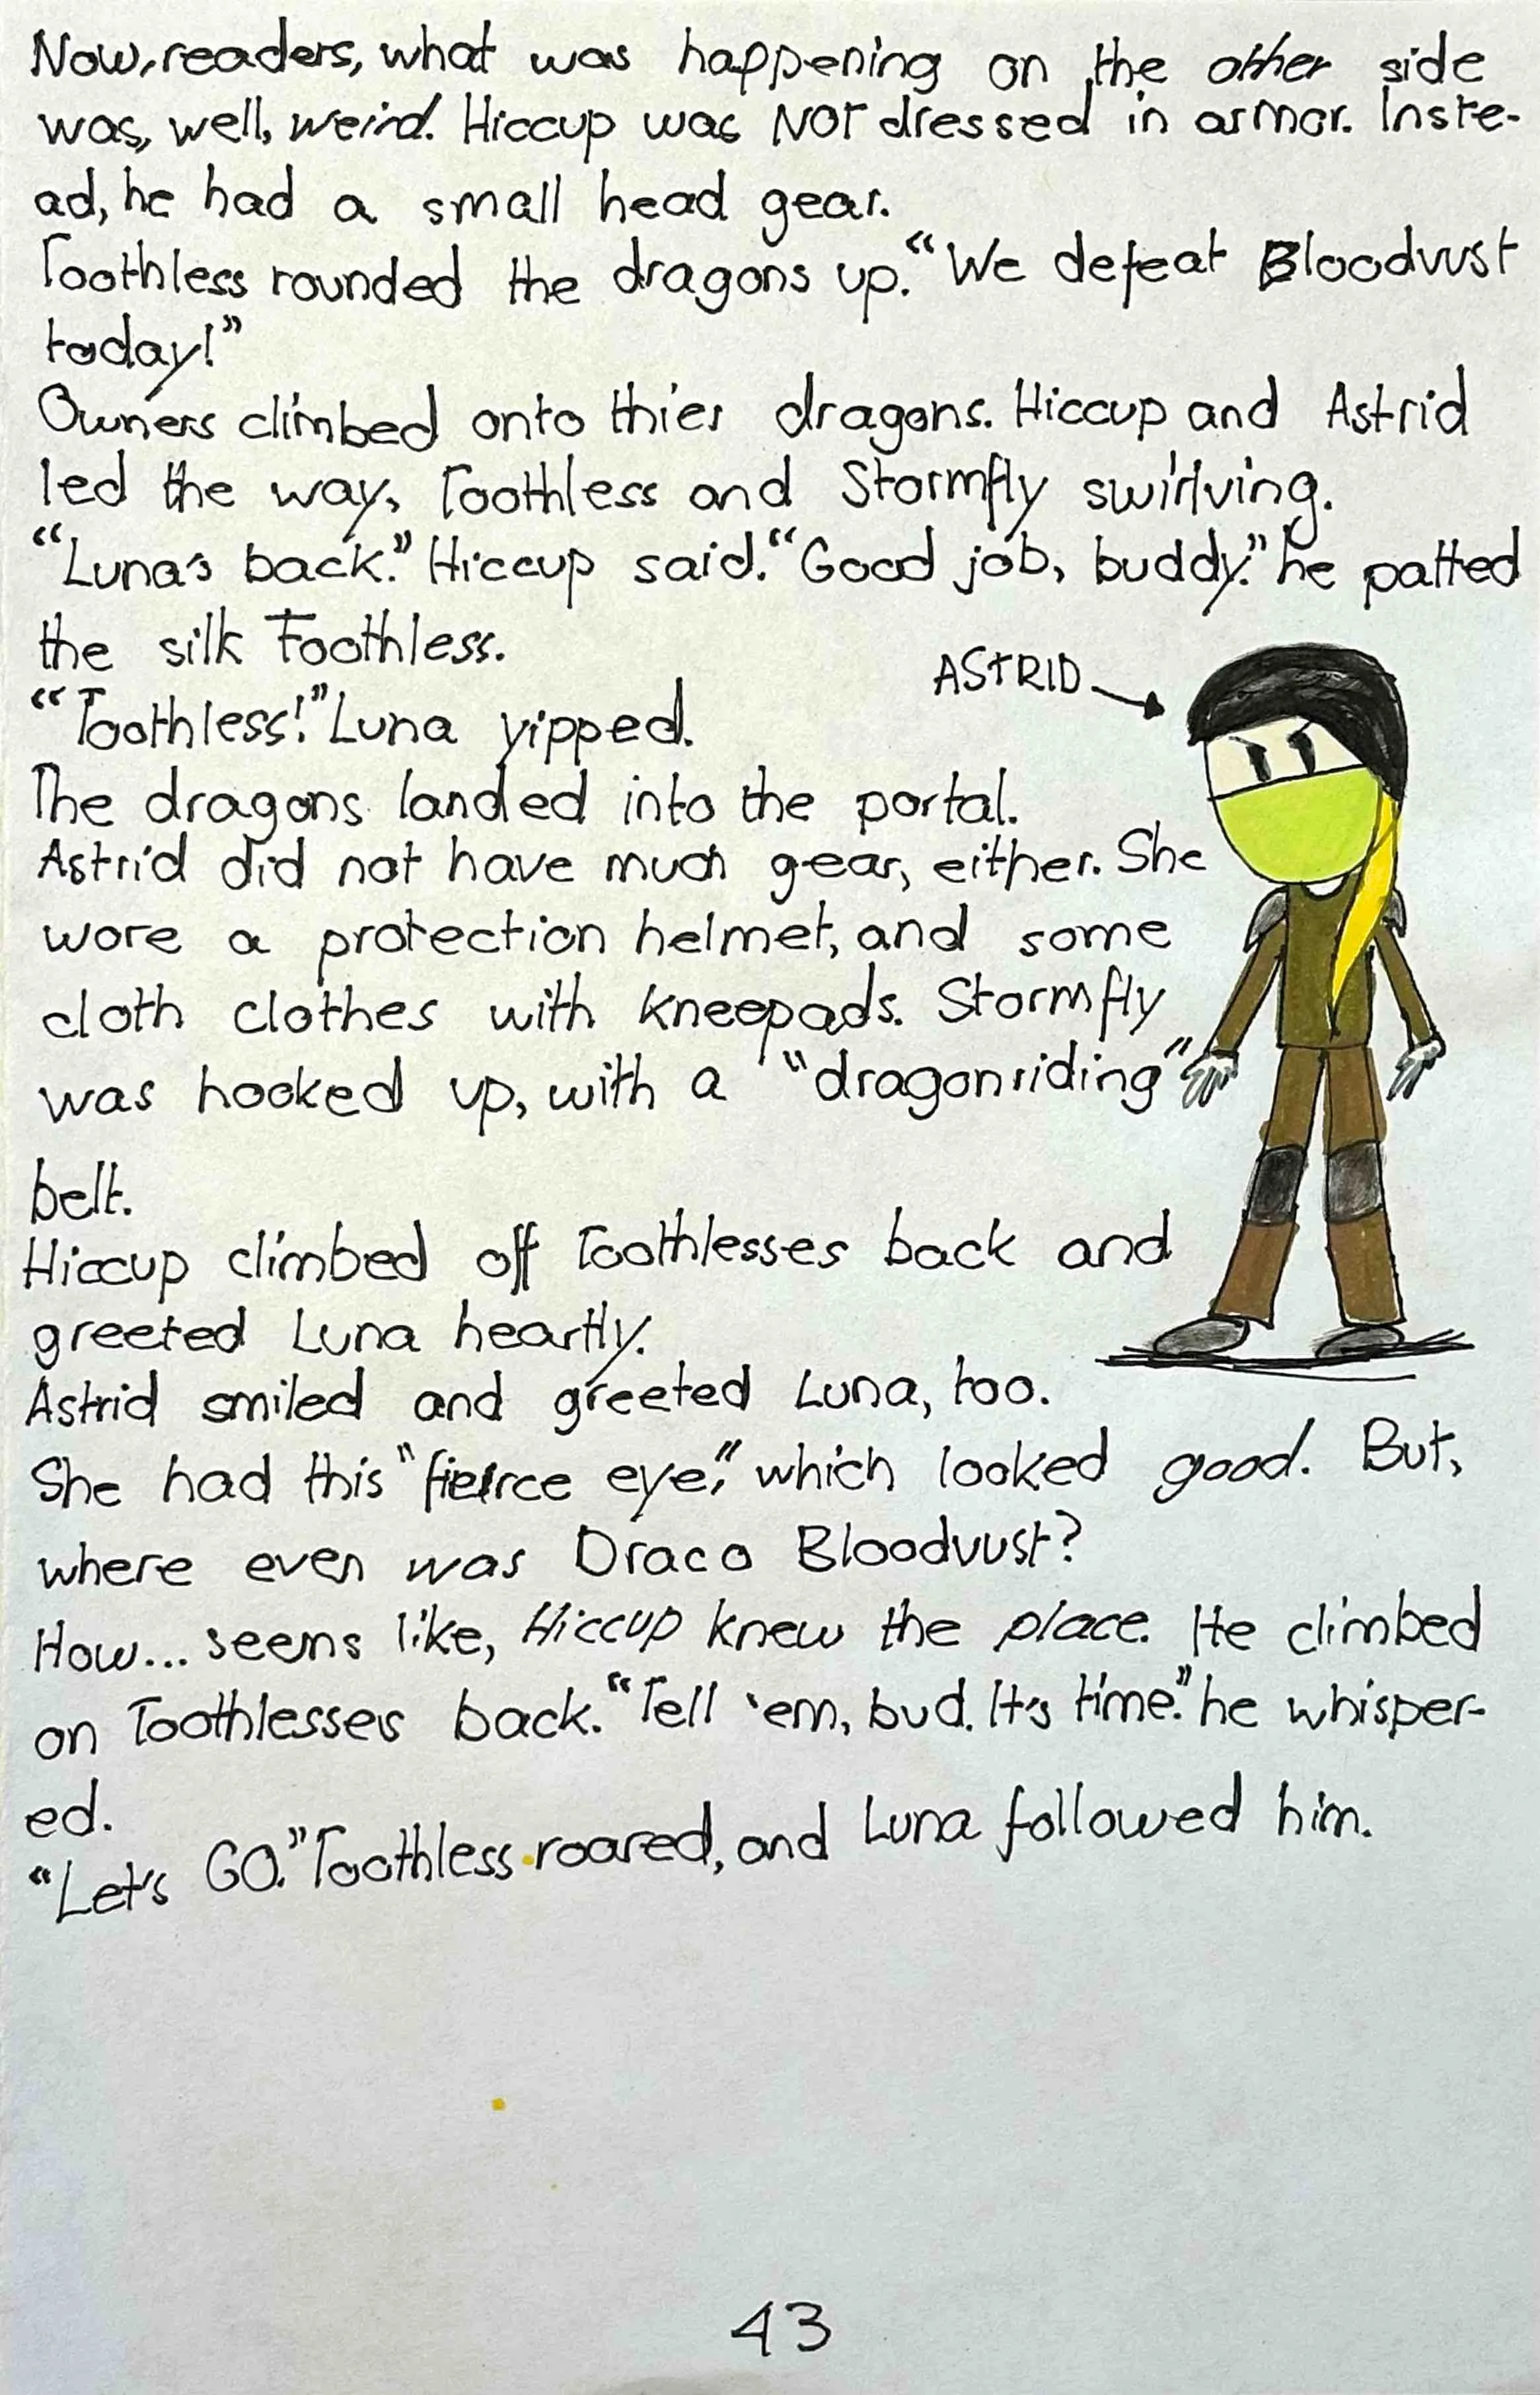 Now, readers, what was happening on the other side
was, well, weird. Hiccup was NOT dressed in armor. Inste-
ad, he had a small head gear.
Toothless rounded the dragons up. "We defeat Bloodvust
today!"
Owners climbed onto thier dragons. Hiccup and Astrid
led the way, Toothless and Stormfly swirlving.
"Luna's back." Hiccup said. "Good job, buddy." he patted
the silk Toothless.
ASTRID
"Toothless!" Luna yipped.
The dragons landed into the portal.
Astrid did not have much gear, either. She
wore a protection helmet, and some
cloth clothes with kneepads. Stormfly
was hooked up, with a "dragonriding"
belt.
Hiccup climbed off Toothlesses back and
greeted Luna heartly.
Astrid smiled and greeted Luna, too.
She had this "fierce eye," which looked good. But,
where even was Draco Bloodvust?
How... seems like, Hiccup knew the place. He climbed
on Toothlesses back. "Tell 'em, bud. It's time." he whisper-
ed.
"Let's GO." Toothless roared, and Luna followed him.
43